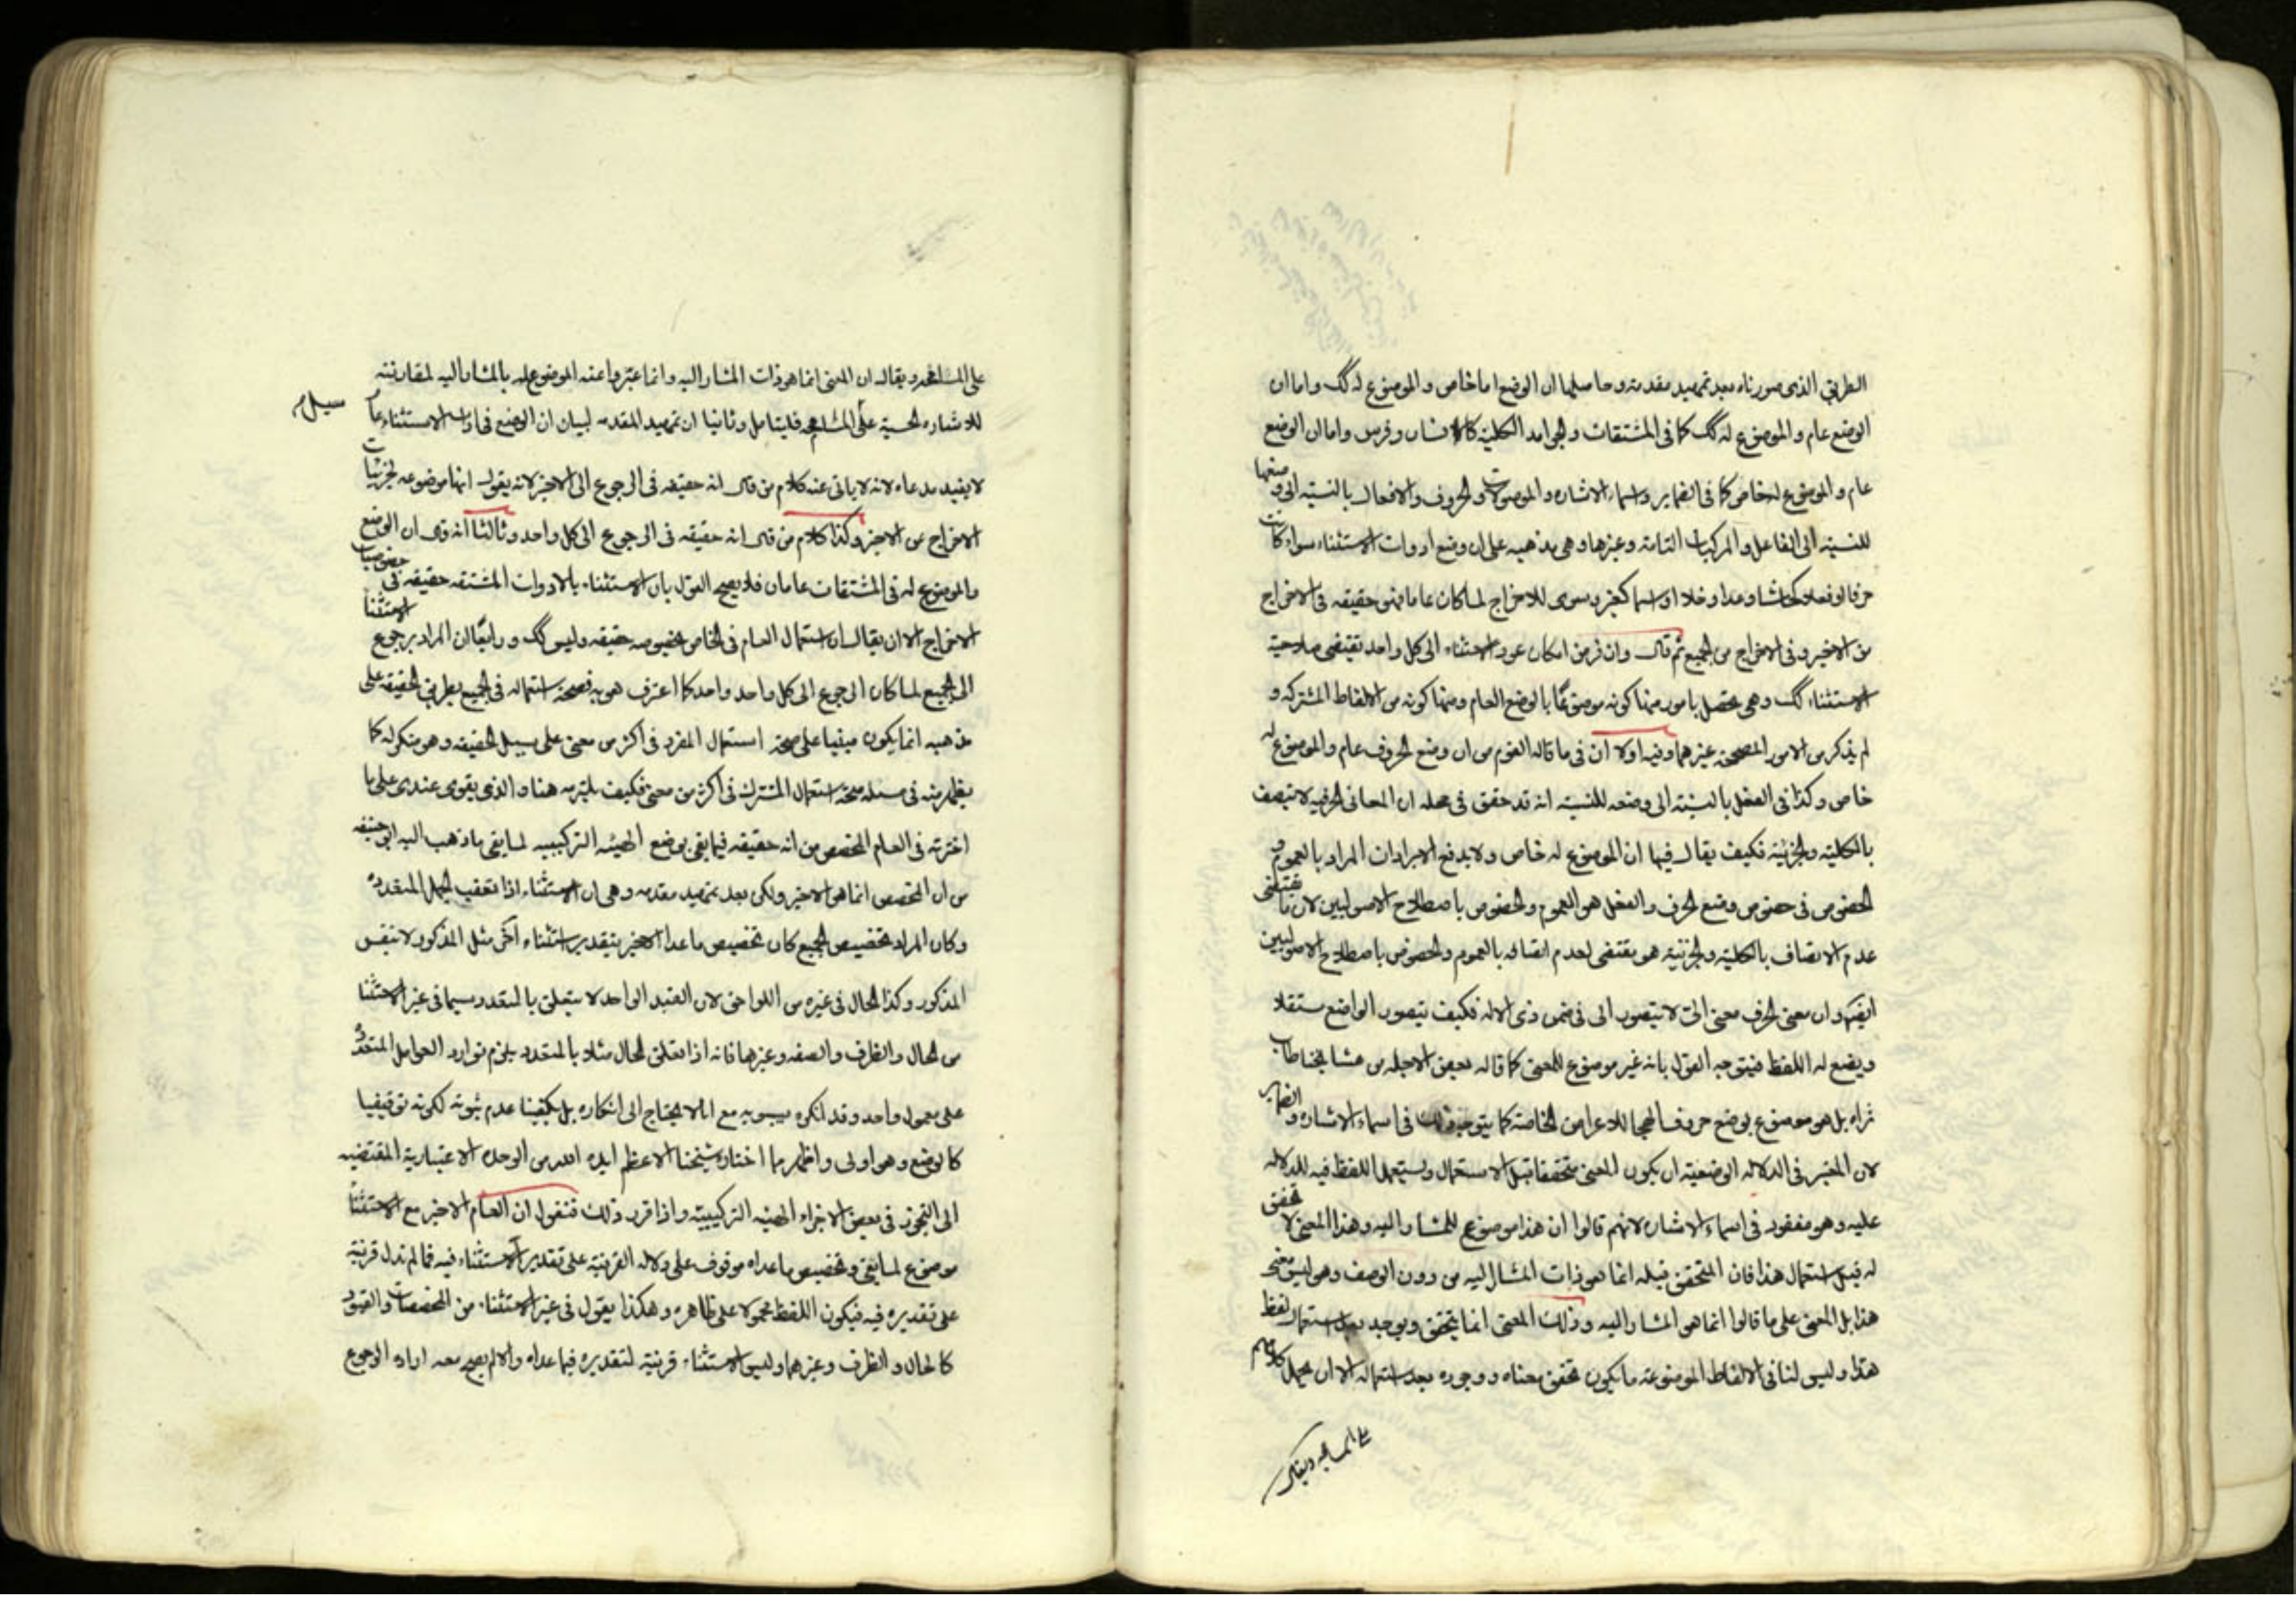 الطريق الذى صورناه بعد تمهيد مقدمة وحاصلها ان الوضع اما خاص و الموضوع له كك واما ان
الوضع عام و الموضوع له كك كما فى المشتقات و الجوامد الكلية كالانسان وفرس واما ان الوضع
عام و الموضوع له خاص كما فى الضماير و اسماء الاشاره و الموصولات و الحروف والافعال بالنسبة الى وضعها
للنسبة الى الفاعل و المركبات التامة وغيرها وهى مذهبيه على ان وضع ادوات الاستثناء سواء كانت
حرفا او فعلا كحاشا وعدا وخلا او اسما كغير وسوى للاخراج لما كان عاما فهو حقيقه فى الاخراج
من الاخير و فى الاخراج من الجميع ثم قال وان فرض امكان عود الاستثناء الى كل واحد تقتضى صلاحية
الاستثناء كك وهى تحصل بامور منها كونه موضوعا بالوضع العام ومنها كونه من الالفاظ المشتركه و
لم يذكر من الامور المصححه غيرهما وفيه اولا ان فى ما قاله القوم من ان وضع الحروف عام والموضوع له
خاص وكذا فى الفعل بالنسبة الى وضعه للنسبة انه قد حقق فى محله ان المعانى الحرفيه لا تتصف
بالكلية والجزئية فكيف يقال فيها ان الموضوع له خاص ولا يدفع الايرادات المراد بالعموم و
الخصوص فى خصوص وضع الحرف والفعل هو العموم والخصوص باصطلاح الاصوليين لان ما يقتضى
عدم الاتصاف بالكلية والجزئية هو مقتضى لعدم اتصافه بالعموم والخصوص باصطلاح الاصوليين
ايضا وان معنى الحرف معنى الى لا يتصور الى فى ضمن ذى الاله فكيف يتصور الواضع مستقلا
ويضع له اللفظ فيتوجه القول بانه غير موضوع للمعنى كما قاله بعض الاجله من مشايخنا طاب
ثراه بل هو موضوع بوضع حروف الهجا للاعراض الخاصة كما يتوجه ذلك فى اسماء الاشاره والضماير
لان المعتبر فى الدلاله الوضعية ان يكون المعنى متحققا قبل الاستعمال ويستعمل اللفظ فيه للدلاله
عليه وهو مفقود فى اسماء الاشاره لانهم قالوا ان هذا موضوع للمشار اليه وهذا المعنى لا تحقق
له قبل استعمال هذا فان المتحقق قبله انما هو ذات المشار اليه من دون الوصف وهو ليس معنى
هذا بل المعنى على ما قالوا انما هو المشار اليه وذلك المعنى انما يتحقق ويوجد بعد استعمال لفظ
هذا وليس لنا فى الالفاظ الموضوعة ما يكون تحقق معناه ووجوده بعد استعماله الا ان يحمل كلامهم
على المسامحه ويقال
على المسامحه ويقال ان المعنى انما هو ذات المشار اليه وانما عبروا عنه الموضوع له بالمشار اليه لمقارنته
للاشاره الحسية على المسامحه فليتامل وثانيا ان تمهيد المقدمه لبيان ان الوضع فى ادوات الاستثناء عام
لا يفيد مدعاه لانه لا يابى عنه كلام من قال انه حقيقه فى الرجوع الى الاخير لانه يقول انها موضوعه لجزئيات
الاخراج عن الاخير وكذا كلام من قال انه حقيقه فى الرجوع الى كل واحد وثالثا انه قال ان الوضع
والموضوع له فى المشتقات عامان فلا يصح القول بان الاستثناء بالادوات المشتقه حقيقه فى خصوصيات
الاخراج الا ان يقال ان استعمال العام فى الخاص بخصوصه حقيقه وليس كك ورابعا ان المراد برجوع الاستثنا
الى الجميع لما كان الرجوع الى كل واحد واحد كما اعترف هو به فصحة استعماله فى الجميع بطريق الحقيقه على
مذهبه انما يكون مبنيا على صحة استعمال المفرد فى اكثر من معنى على سبيل الحقيقه وهو منكر له كما
يظهر منه فى مسئله صحة استعمال المشترك فى اكثر من معنى فكيف يلتزمه هنا والذى يقوى عندى على ما
اخترته فى العام المخصص من انه حقيقه فيما بقى بوضع الهيئه التركيبيه لما بقى ما ذهب اليه ابو حنيفه
من ان المخصص انما هو الاخير ولكن بعد تمهيد مقدمه وهى ان الاستثناء اذا تعقب الجمل المتعدده
وكان المراد تخصيص الجميع كان تخصيص ما عدا الاخير بتقدير استثناء آخر مثل المذكور لا بنفس
المذكور وكذا الحال فى غيره من اللواحق لان القيد الواحد لا يتعلق بالمتعدد سيما فى غير الاستثنا
من الحال والظرف والصفه وغيرها فانه اذا تعلق الحال مثلا بالمتعدد يلزم توارد العوامل المتعدده
على معمول واحد وقد انكره سيبويه مع انه لا يحتاج الى انكاره بل يكفينا عدم ثبوته لكونه توقيفيا
كالوضع وهو اولى واظهر مما اختاره شيخنا الاعظم ايده الله من الوحده الاعتبارية المقتضيه
الى التجوز فى بعض الاجزاء الهيئه التركيبية واذا قرر ذلك فنقول ان العام الاخير مع الاستثنا
موضوع لما بقى وتخصيص ما عداه موقوف على دلاله القرينة على تقدير الاستثناء فيه فما لم تدل قرينة
على تقديره فيه فيكون اللفظ محمولا على ظاهره وهكذا يقول فى غير الاستثناء من المخصصات والقيود
كالحال و الظرف وغيرهما وليس الاستثناء قرينة لتقديره فيما عداه والا لم يصح معه اراده الرجوع